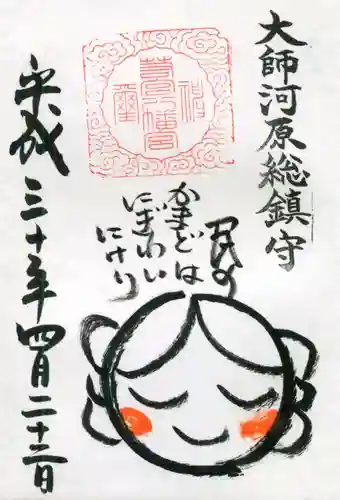 大師河原総鎮守
民の
かまどは
にぎわい
にけり
平成三十年四月二十二日